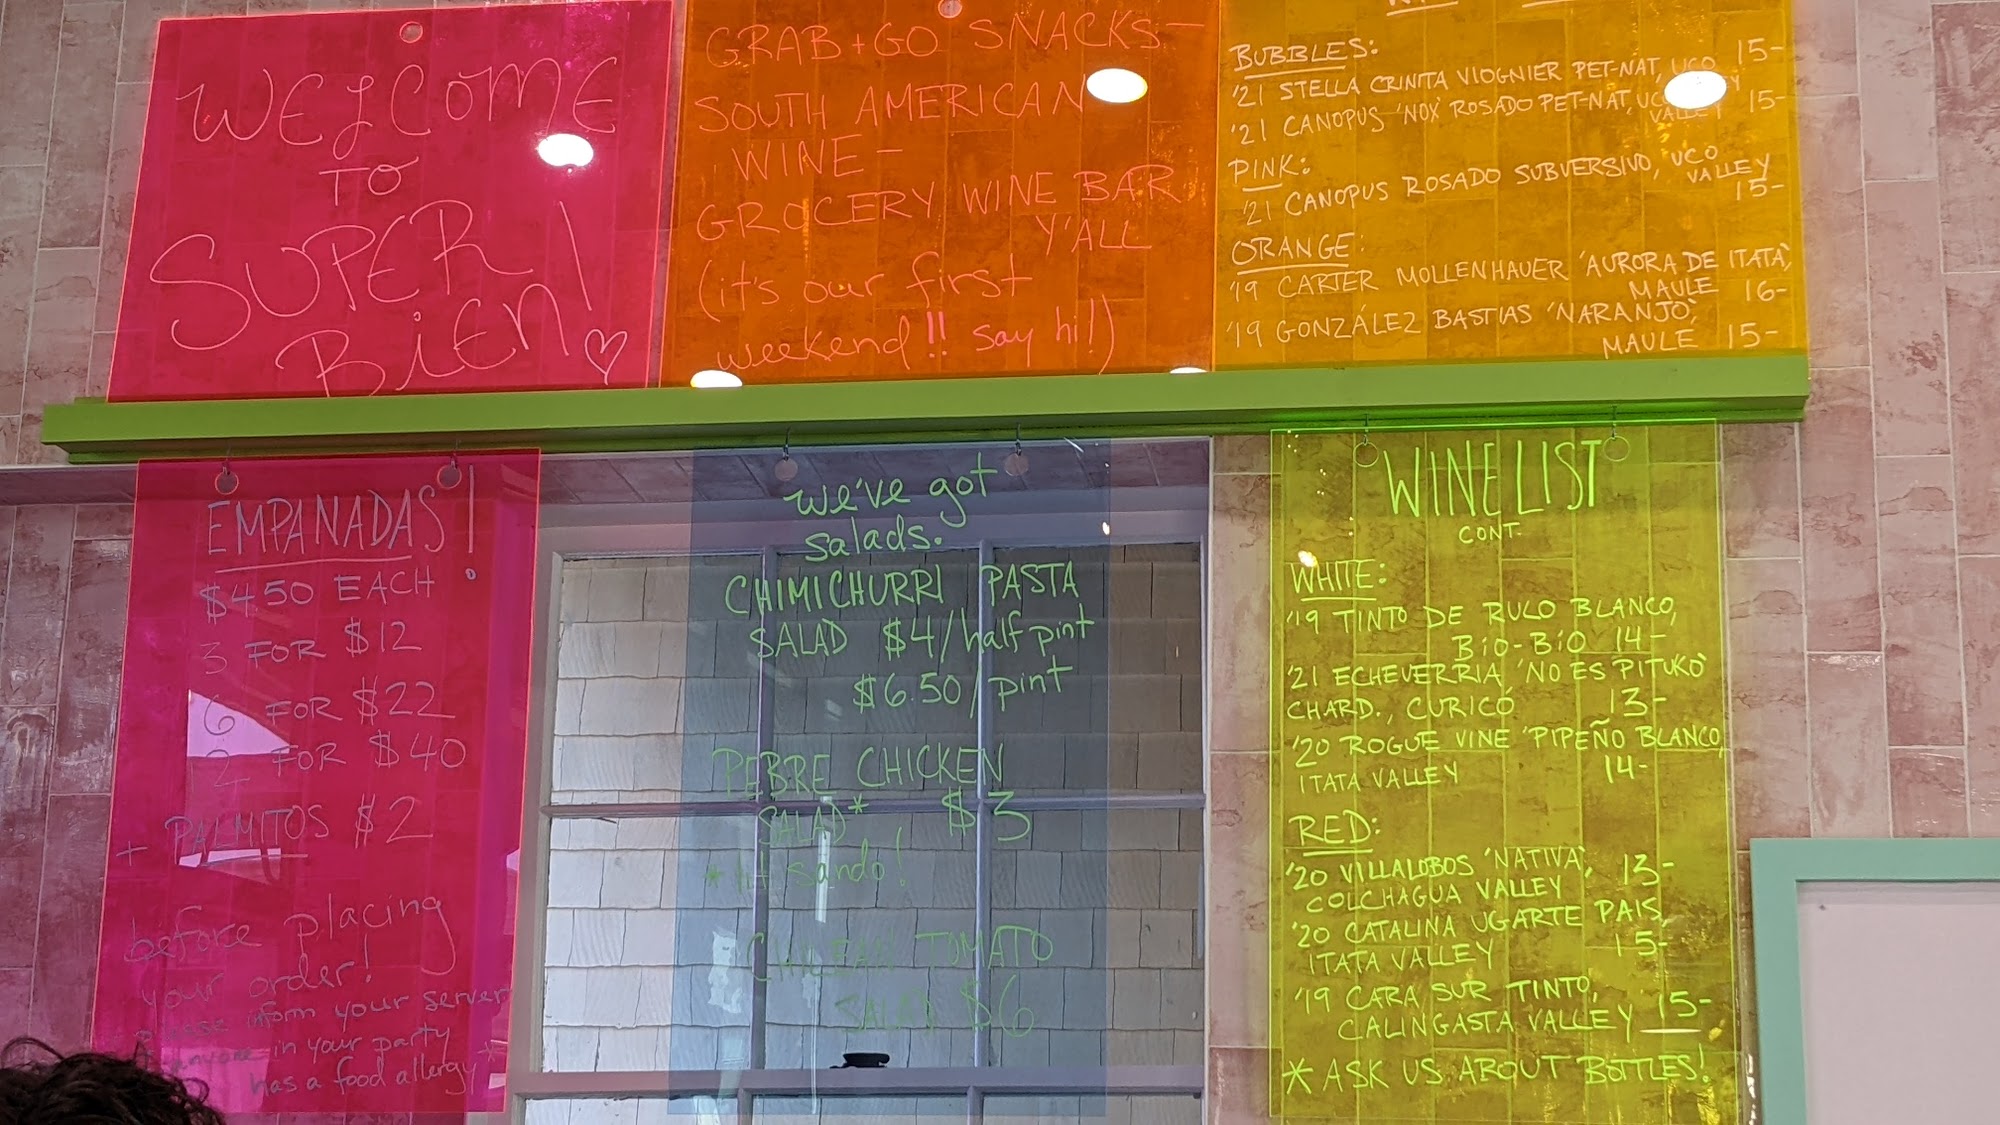 WELCOME
TO
SUPER
BIEN!
GRAB + GO SNACKS —
SOUTH AMERICAN
WINE —
GROCERY WINE BAR
Y'ALL
(it's our first
weekend!! say hi!)
BUBBLES:
'21 STELLA CRINITA VIOGNIER PET-NAT, UCO 15-
'21 CANOPUS 'NOX' ROSADO PET-NAT, UCO
VALLEY 15-
PINK:
'21 CANOPUS ROSADO SUBVERSIVO, UCO
VALLEY
15-
ORANGE:
'19 CARTER MOLLENHAUER 'AURORA DE ITATA',
MAULE 16-
'19 GONZÁLEZ BASTIAS 'NARANJO',
MAULE 15-
EMPANADAS!
$4.50 EACH
3 FOR $12
6 FOR $22
FOR $40
+ PALMITOS $2
before placing
your order!
please inform your server
if anyone in your party
has a food allergy *
we've got
salads.
CHIMICHURRI PASTA
SALAD $4/half pint
$6.50/pint
PEBRE CHICKEN
SALAD* $3
* lit sando!
CHILEAN TOMATO
SALAD $6
WINE LIST
CONT.
WHITE:
'19 TINTO DE RULO BLANCO,
BíO-BíO 14-
'21 ECHEVERRIA 'NO ES PITUKO'
CHARD., CURICÓ 13-
'20 ROGUE VINE 'PIPEÑO BLANCO,
ITATA VALLEY 14-
RED:
'20 VILLALOBOS 'NATIVA', 13-
COLCHAGUA VALLEY
'20 CATALINA UGARTE PAIS,
ITATA VALLEY 15-
'19 CARA SUR TINTO,
CALINGASTA VALLEY 15-
* ASK US ABOUT BOTTLES!